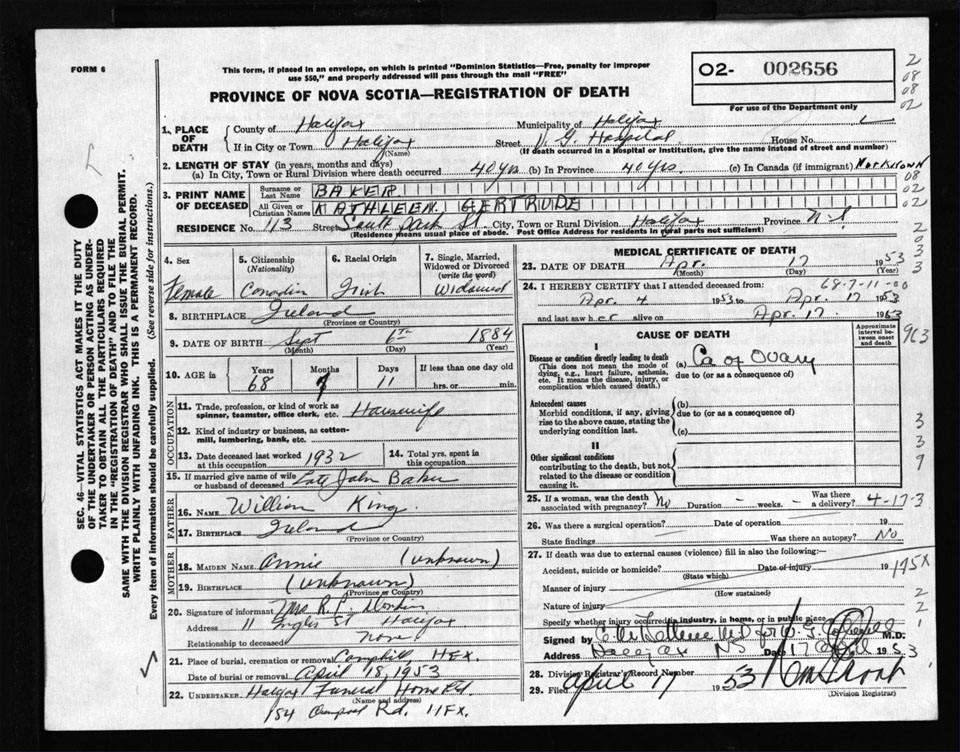 FORM 6
This form, if placed in an envelope, on which is printed "Dominion Statistics—Free, penalty for improper
use $50," and properly addressed will pass through the mail "FREE"
PROVINCE OF NOVA SCOTIA—REGISTRATION OF DEATH
02- 002656
For use of the Department only
2
08
08
02
1. PLACE OF DEATH
County of Halifax Municipality of Halifax
If in City or Town Halifax Street V. G. Hospital House No.
(Name) (If death occurred in a Hospital or Institution, give the name instead of street and number)
2. LENGTH OF STAY (in years, months and days)
(a) In City, Town or Rural Division where death occurred 40 yrs (b) In Province 40 yrs. (c) In Canada (if immigrant) Not Known
3. PRINT NAME OF DECEASED
Surname or Last Name BAKER
All Given or Christian Names KATHLEEN. GERTRUDE
08
02
02
RESIDENCE No. 113 Street South Park St. City, Town or Rural Division Halifax Province N.S.
(Residence means usual place of abode. Post Office Address for residents in rural parts not sufficient)
4. Sex
Female
5. Citizenship
(Nationality)
6. Racial Origin
Irish
7. Single, Married,
Widowed or Divorced
(write the word)
Widowed
8. BIRTHPLACE Ireland
(Province or Country)
9. DATE OF BIRTH Sept 6th 1884
(Month) (Day) (Year)
10. AGE in
Years Months Days If less than one day old
68 7 11 hrs. or min.
OCCUPATION
11. Trade, profession, or kind of work as
spinner, teamster, office clerk, etc. Housewife
12. Kind of industry or business, as cotten-
mill, lumbering, bank, etc.
13. Date deceased last worked
at this occupation 1932
14. Total yrs. spent in
this occupation
15. If married give name of wife
or husband of deceased Late John Baker
FATHER
16. NAME William King
17. BIRTHPLACE Ireland
(Province or Country)
MOTHER
18. MAIDEN NAME Annie (unknown)
19. BIRTHPLACE (unknown)
(Province or Country)
20. Signature of informant Mrs R. P.
Address 11 Inglis St Halifax
Relationship to deceased None
21. Place of burial, cremation or removal HFX.
Date of burial or removal April 18, 1953
22. UNDERTAKER Halifax Funeral Home Ltd.
(Name and address)
Rd. HFX.
MEDICAL CERTIFICATE OF DEATH
23. DATE OF DEATH Apr. 17 1953
(Month) (Day) (Year)
24. I HEREBY CERTIFY that I attended deceased from: 68-7-11-00
Apr. 4 1953 to Apr. 17 1953
and last saw her alive on Apr. 17 1953
CAUSE OF DEATH
Approximate
interval be-
tween onset
and death
I
Disease or condition directly leading to death
(This does not mean the mode of
dying, e.g., heart failure, asthenia,
etc. It means the disease, injury, or
complication which caused death.)
(a) Ca of Ovary
due to (or as a consequence of)
Antecedent causes
Morbid conditions, if any, giving
rise to the above cause, stating the
underlying condition last.
(b)
due to (or as a consequence of)
(c)
II
Other significant conditions
contributing to the death, but not
related to the disease or condition
causing it.
25. If a woman, was the death
associated with pregnancy? No Duration - weeks. - Was there
a delivery? 4-17-3
26. Was there a surgical operation? Date of operation 19
State findings Was there an autopsy? No
27. If death was due to external causes (violence) fill in also the following:—
Accident, suicide or homicide? Date of injury 19
(State which)
175X
Manner of injury
(How sustained)
Nature of injury
Specify whether injury occurred in industry, in home, or in public place
Signed by M.D.
Address Halifax NS Date 17 April 1953
28. Division Registrar's Record Number
29. Filed April 17 1953
(Division Registrar)
SEC. 46—VITAL STATISTICS ACT MAKES IT THE DUTY
OF THE UNDERTAKER OR PERSON ACTING AS UNDER-
TAKER TO OBTAIN ALL THE PARTICULARS REQUIRED
IN THE "REGISTRATION OF DEATH" AND TO FILE THE
SAME WITH THE DIVISION REGISTRAR WHO SHALL ISSUE THE BURIAL PERMIT.
WRITE PLAINLY WITH UNFADING INK. THIS IS A PERMANENT RECORD.
Every item of information should be carefully supplied. (See reverse side for instructions.)